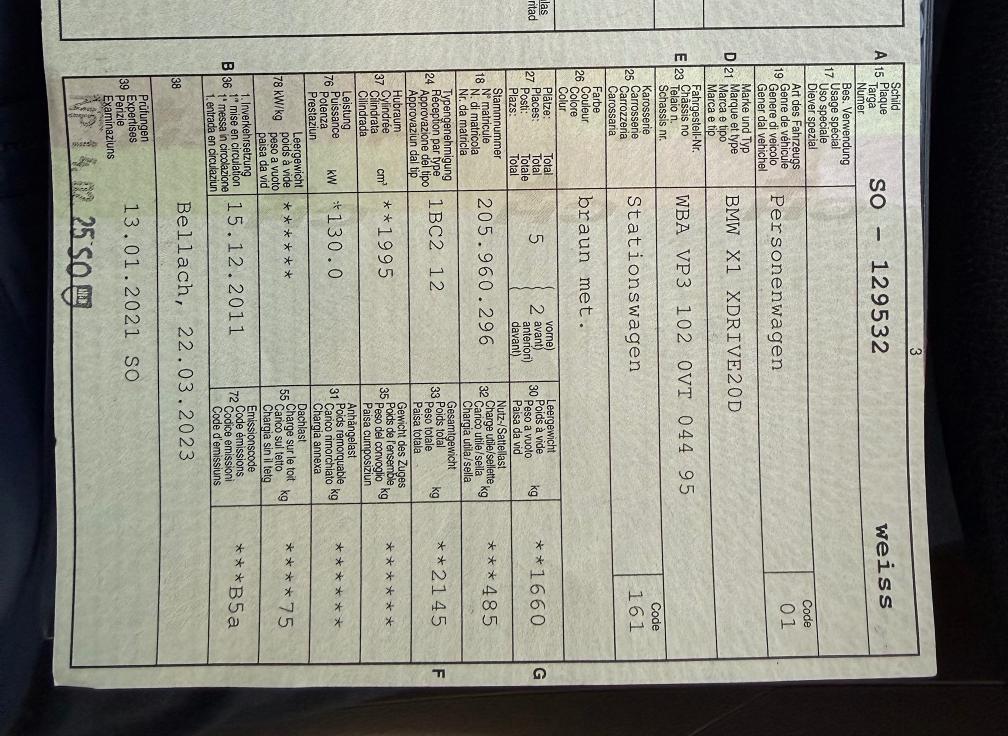 3
A 15 Schild
Plaque
Targa
Numer
SO - 129532 weiss
17 Bes. Verwendung
Usage spécial
Uso speciale
Diever spezial
19 Art des Fahrzeugs
Genre de véhicule
Genere di veicolo
Gener dal vehichel
Personenwagen
Code
01
D 21 Marke und Typ
Marque et type
Marca e tipo
Marca e tip
BMW X1 XDRIVE20D
E 23 Fahrgestell-Nr.
Châssis no
Telaio n.
Schassis nr.
WBA VP3 102 0VT 044 95
25 Karosserie
Carrosserie
Carrozzeria
Carossaria
Stationswagen
Code
161
26 Farbe
Couleur
Colore
Colur
braun met.
27 Plätze: Total
Places: Total
Posti: Totale
Plazs: Total
5
2
vorne)
avant)
anteriori)
davant)
30 Leergewicht
Poids à vide
Peso a vuoto
Paisa da vid
kg
**1660
G
18 Stammnummer
N° matricule
N. di matricola
Nr. da matricla
205.960.296
32 Nutz-/Sattellast
Charge utile/sellette
Carico utile/sella
Chargia utila/sella
kg
***485
24 Typengenehmigung
Réception par type
Approvazione del tipo
Approvaziun dal tip
1BC2 12
33 Gesamtgewicht
Poids total
Peso totale
Paisa totala
kg
**2145
F
37 Hubraum
Cylindrée
Cilindrata
Cilindrada
cm³
**1995
35 Gewicht des Zuges
Poids de l'ensemble
Peso del convoglio
Paisa cumposiziun
kg
******
76 Leistung
Puissance
Potenza
Prestaziun
kW
*130.0
31 Anhängelast
Poids remorquable
Carico rimorchiato
Chargia annexa
kg
******
78 kW/kg
Leergewicht
poids à vide
peso a vuoto
paisa da vid
******
55 Dachlast
Charge sur le toit
Carico sul tetto
Chargia sin il tetg
kg
****75
B 36 1. Inverkehrsetzung
1re mise en circulation
1a messa in circolazione
1. entrada en circulaziun
15.12.2011
72 Emissionscode
Code émissions
Codice emissioni
Code d'emissiuns
***B5a
38 Bellach, 22.03.2023
39 Prüfungen
Expertises
Perizie
Examinaziuns
13.01.2021 SO
25 SO